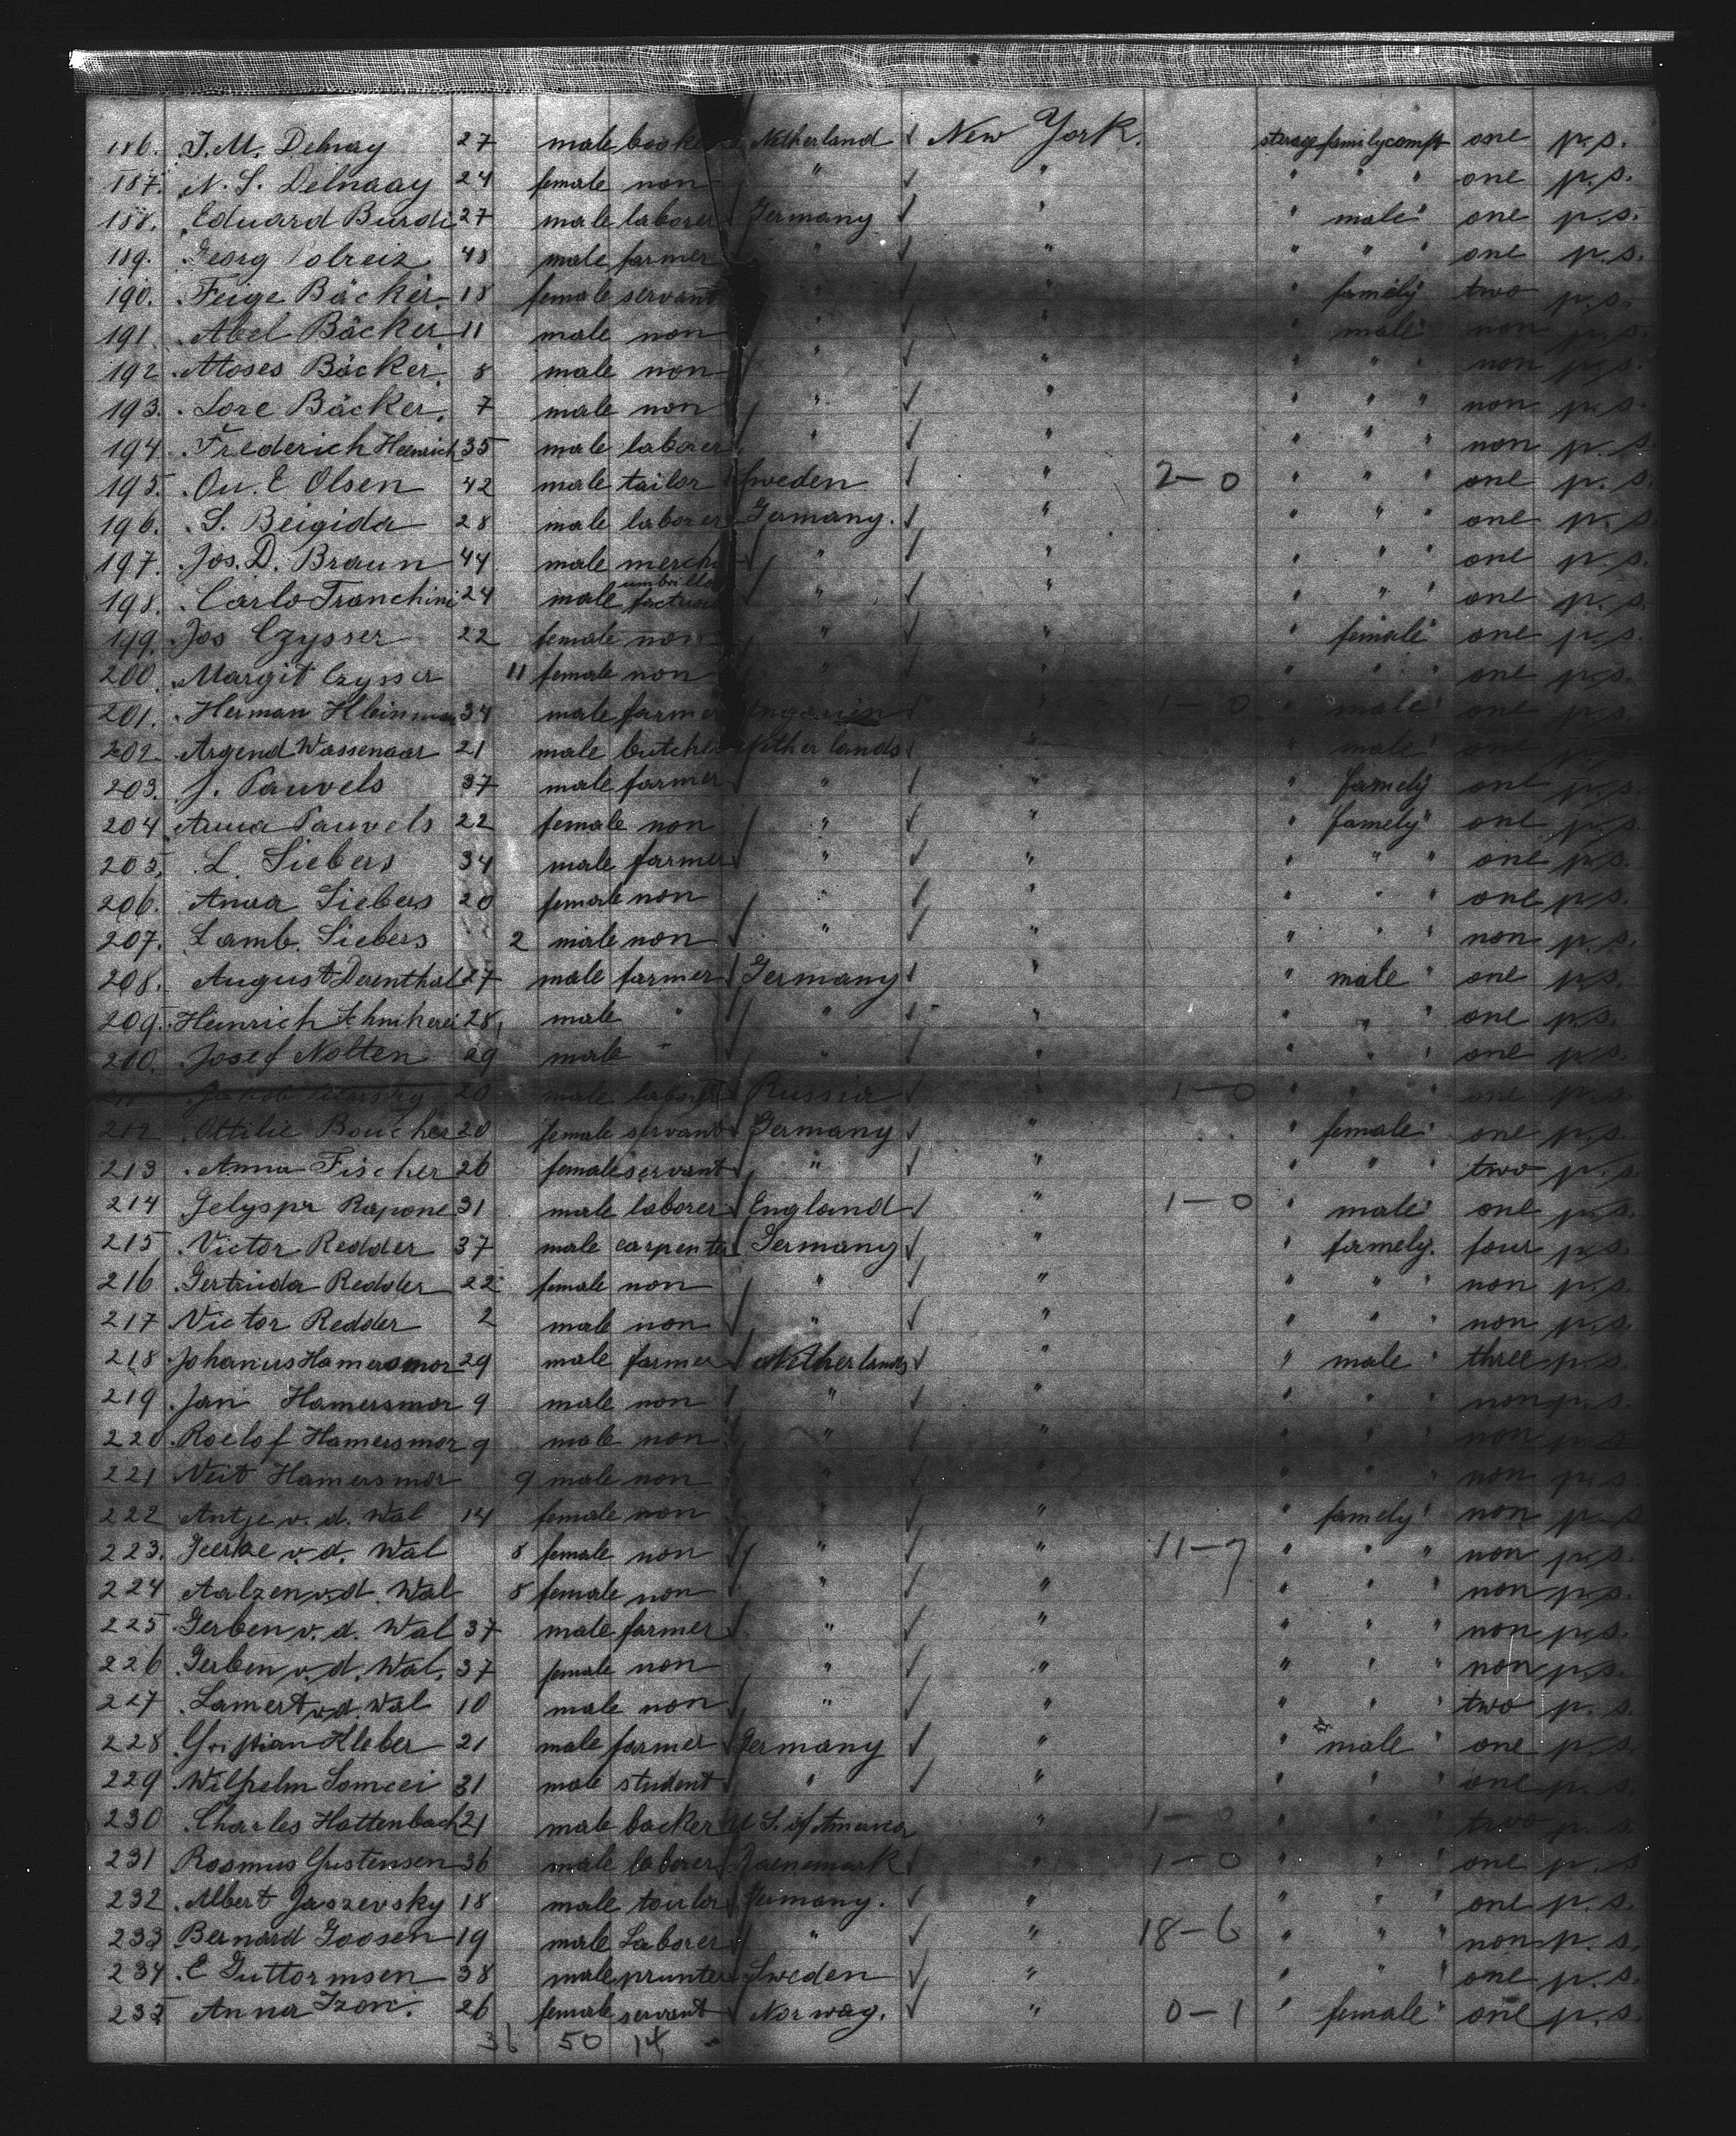 186. J. M. Delnay 27 male Netherland ✓ New York. sterage family compt one p.s.
187. N. S. Delnaay 24 female non " ✓ " " " " one p.s.
188. Eduard Burdi 27 male laborer Germany ✓ " " male " one p.s.
189. Georg 48 male farmer " ✓ " " " " one p.s.
190. Feige Bäcker 18 female servant " " " family two p.s.
191. Abel Bäcker 11 male non " " " male " non p.s.
192. Moses Bäcker 8 male non " ✓ " " " " non p.s.
193. Sore Bäcker 7 male non " ✓ " " " " non p.s.
194. Frederich Heinrich 35 male laborer " ✓ " " " " non p.s.
195. Ou. E Olsen 42 male tailor Sweden ✓ " 2-0 " " " one p.s.
196. S. Beigida 28 male laborer Germany. ✓ " " " " one p.s.
197. Jos. D. Braun 44 male merch " ✓ " " " " one p.s.
198. Carlo Franchini 24 male umbrella " ✓ " " " " one p.s.
199. Jos Czysser 22 female non " ✓ " " female " one p.s.
200. Margit Czysser 11 female non " ✓ " " " " one p.s.
201. Herman 34 male farmer ✓ " 1-0 " male " one p.s.
202. Argend Wassenaar 21 male butcher Netherlands ✓ " " male " one p.s.
203. J. Pauvels 37 male farmer " ✓ " " famely one p.s.
204 Anna Pauvels 22 female non " ✓ " " famely " one p.s.
205. L. Siebers 34 male farmer " ✓ " " " " one p.s.
206. Anna Siebers 20 female non " ✓ " " " " one p.s.
207. Lamb. Siebers 2 male non " ✓ " " " " non p.s.
208. August Derenthal 27 male farmer Germany ✓ " " male " one p.s.
209. Heinrich 28 male " " ✓ " " " " one p.s.
210. Josef Nolten 29 male " " ✓ " " " " one p.s.
211 Jakob 20 male laborer Russia ✓ " 1-0 " " " one p.s.
212 Ottilie Boucher 20 female servant Germany ✓ " female " one p.s.
213 Anna Fischer 26 female servant " ✓ " " " " two p.s.
214 Rapone 31 male laborer England ✓ " 1-0 " male " one p.s.
215 Victor Redder 37 male carpenter Germany ✓ " " famely. four p.s.
216 Gertruda Redder 22 female non " ✓ " " " " non p.s.
217 Victor Redder 2 male non " ✓ " " " " non p.s.
218 Johanus Hamersmor 29 male farmer Netherlands ✓ " " male " three p.s.
219 Jan Hamersmor 9 male non " ✓ " " " " non p.s.
220 Roelof Hamersmor 9 male non " ✓ " " " " non p.s.
221 Hamersmor 9 male non " ✓ " " " " non p.s.
222 Antje v. d. Wal 14 female non " ✓ " " famely " non p.s.
223. Jeerke v. d. Wal 8 female non " ✓ " 11-7 " " " non p.s.
224 Aalzen v. d. Wal 8 female non " ✓ " " " " non p.s.
225 Gerben v. d. Wal 37 male farmer " ✓ " " " " non p.s.
226 Gerben v. d. Wal. 37 female non " ✓ " " " " non p.s.
227 Lamert v. d. Wal 10 male non " ✓ " " " " two p.s.
228 Kleber 21 male farmer Germany ✓ " " male " one p.s.
229 Wilhelm Lomcei 31 male student " ✓ " " " " one p.s.
230 Charles Hattenbach 21 male backer U S. of America " 1-0 " " " two p.s.
231 Rasmus Gristensen 36 male laborer Daenemark ✓ " 1-0 " " " one p.s.
232 Albert Jaszevsky 18 male Germany. ✓ " " " " one p.s.
233 Bernard Goosen 19 male Laborer " ✓ " 18-6 " " " non p.s.
234 E Guttormsen 38 male prunter Sweden ✓ " " " " one p.s.
235 Anna Izon. 26 female servant Norway. ✓ " 0-1 " female " one p.s.
36 50 14 -